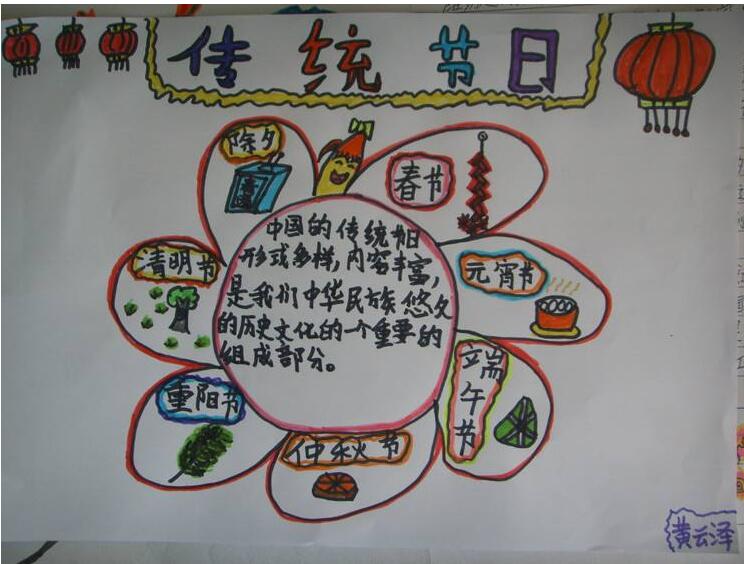 传统节日
除夕
春节
清明节
元宵节
中国的传统节日
形式多样，内容丰富，
是我们中华民族悠久
的历史文化的一个重要的
组成部分。
端午节
重阳节
仲秋节
黄云泽